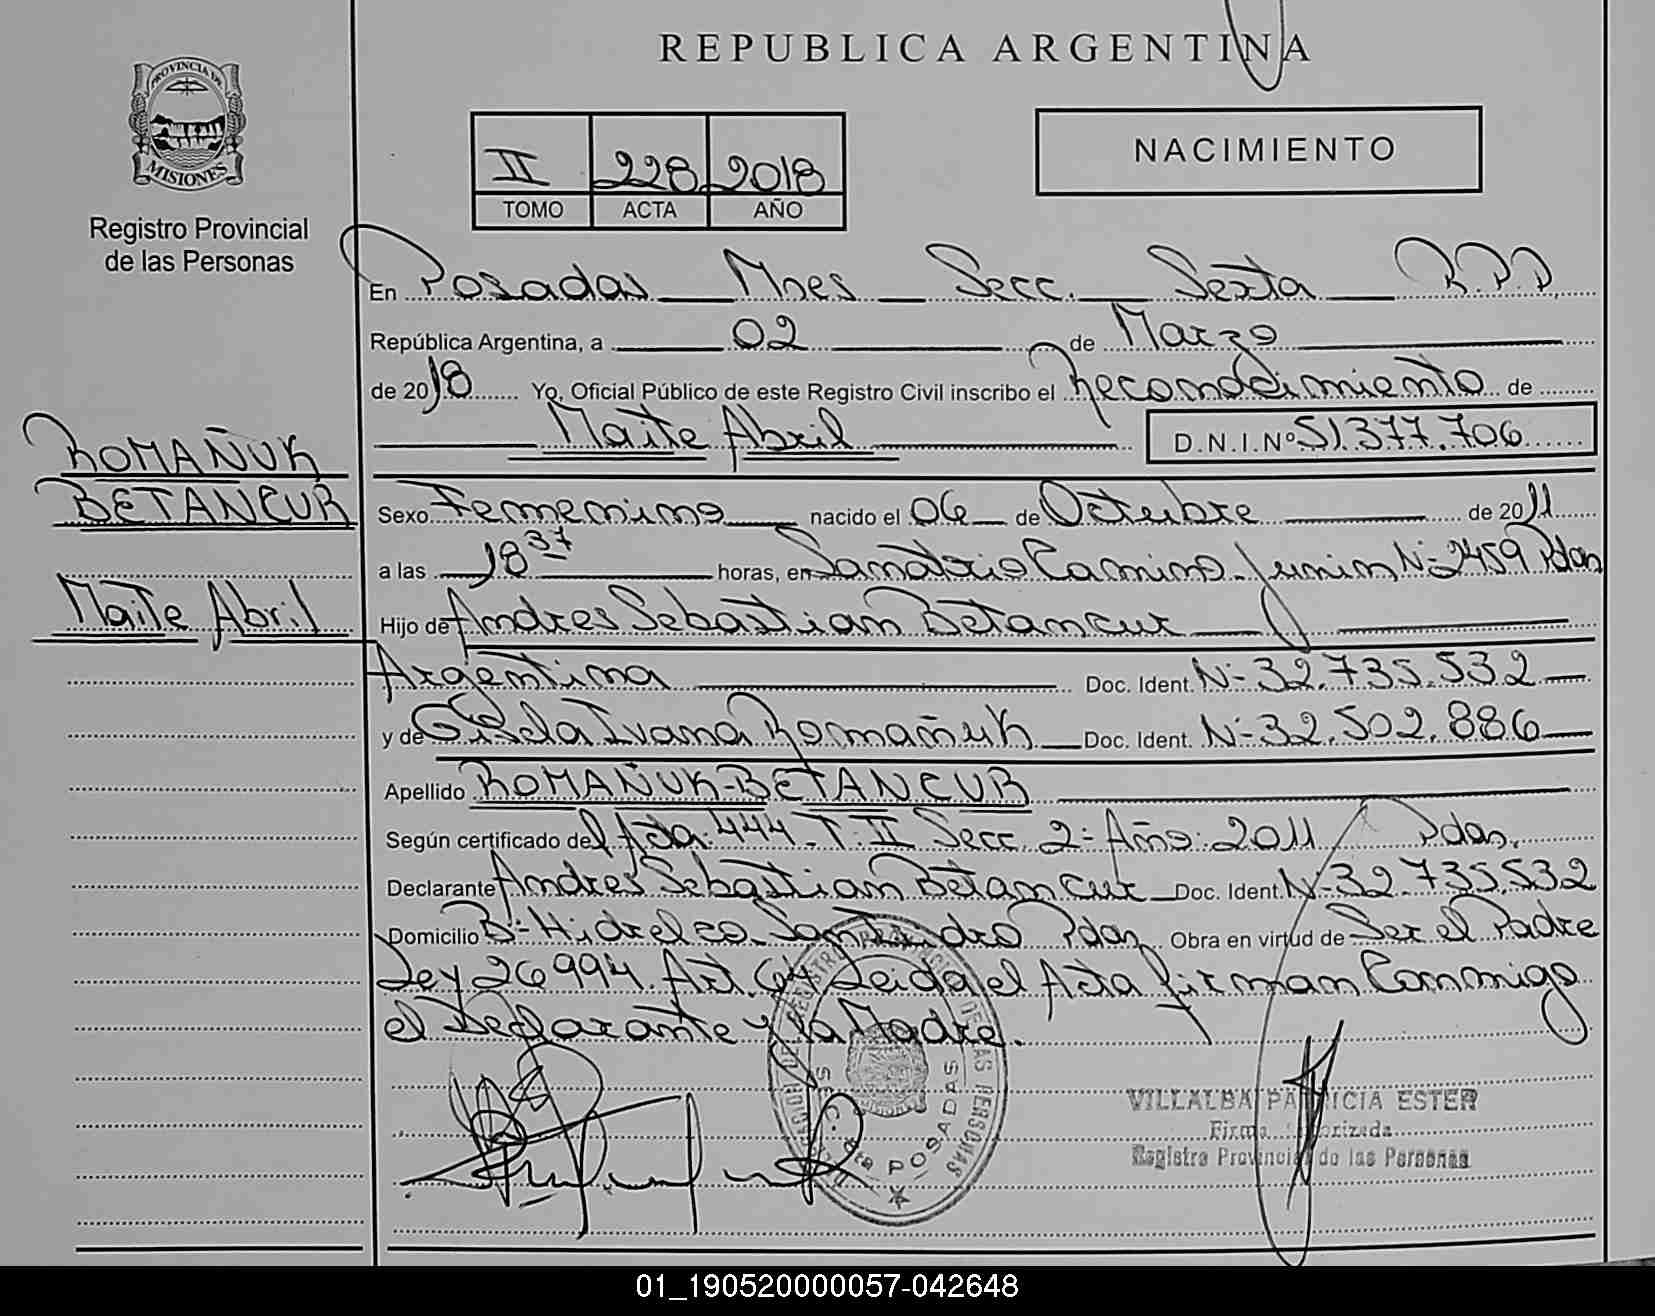 REPUBLICA ARGENTINA
PROVINCIA DE
MISIONES
Registro Provincial
de las Personas
II 228 2018
TOMO ACTA AÑO
NACIMIENTO
En Posadas Mnes Secc. Sexta R.P.P.
República Argentina, a 02 de Marzo
de 2018 Yo, Oficial Público de este Registro Civil inscribo el Reconocimiento de
Maite Abril D.N.I.Nº 51.377.706
ROMAÑUK
BETANCUR
Maite Abril
Sexo Femenino nacido el 06 de Octubre de 2011
a las 18 37 horas, en Sanatorio Camino Junin Nº 2459 Pdas
Hijo de Andres Sebastian Betancur
Argentina Doc. Ident. Nº 32.735.532
y de Gisela Ivana Romañuk Doc. Ident. Nº 32.502.886
Apellido ROMAÑUK-BETANCUR
Según certificado del Acta: 444 T: II Secc. 2º Año: 2011 Pdas.
Declarante Andres Sebastian Betancur Doc. Ident. Nº 32.735.532
Domicilio Bº Hidrelco Pdas Obra en virtud de Ser el Padre
Ley 26994. Art. 64 Leida el Acta firman Conmigo
el Declarante y la Madre.
SECC. 6ta POSADAS
VILLALBA PATRICIA ESTER
Firma Autorizada
Registro Provincial de las Personas
01_190520000057-042648